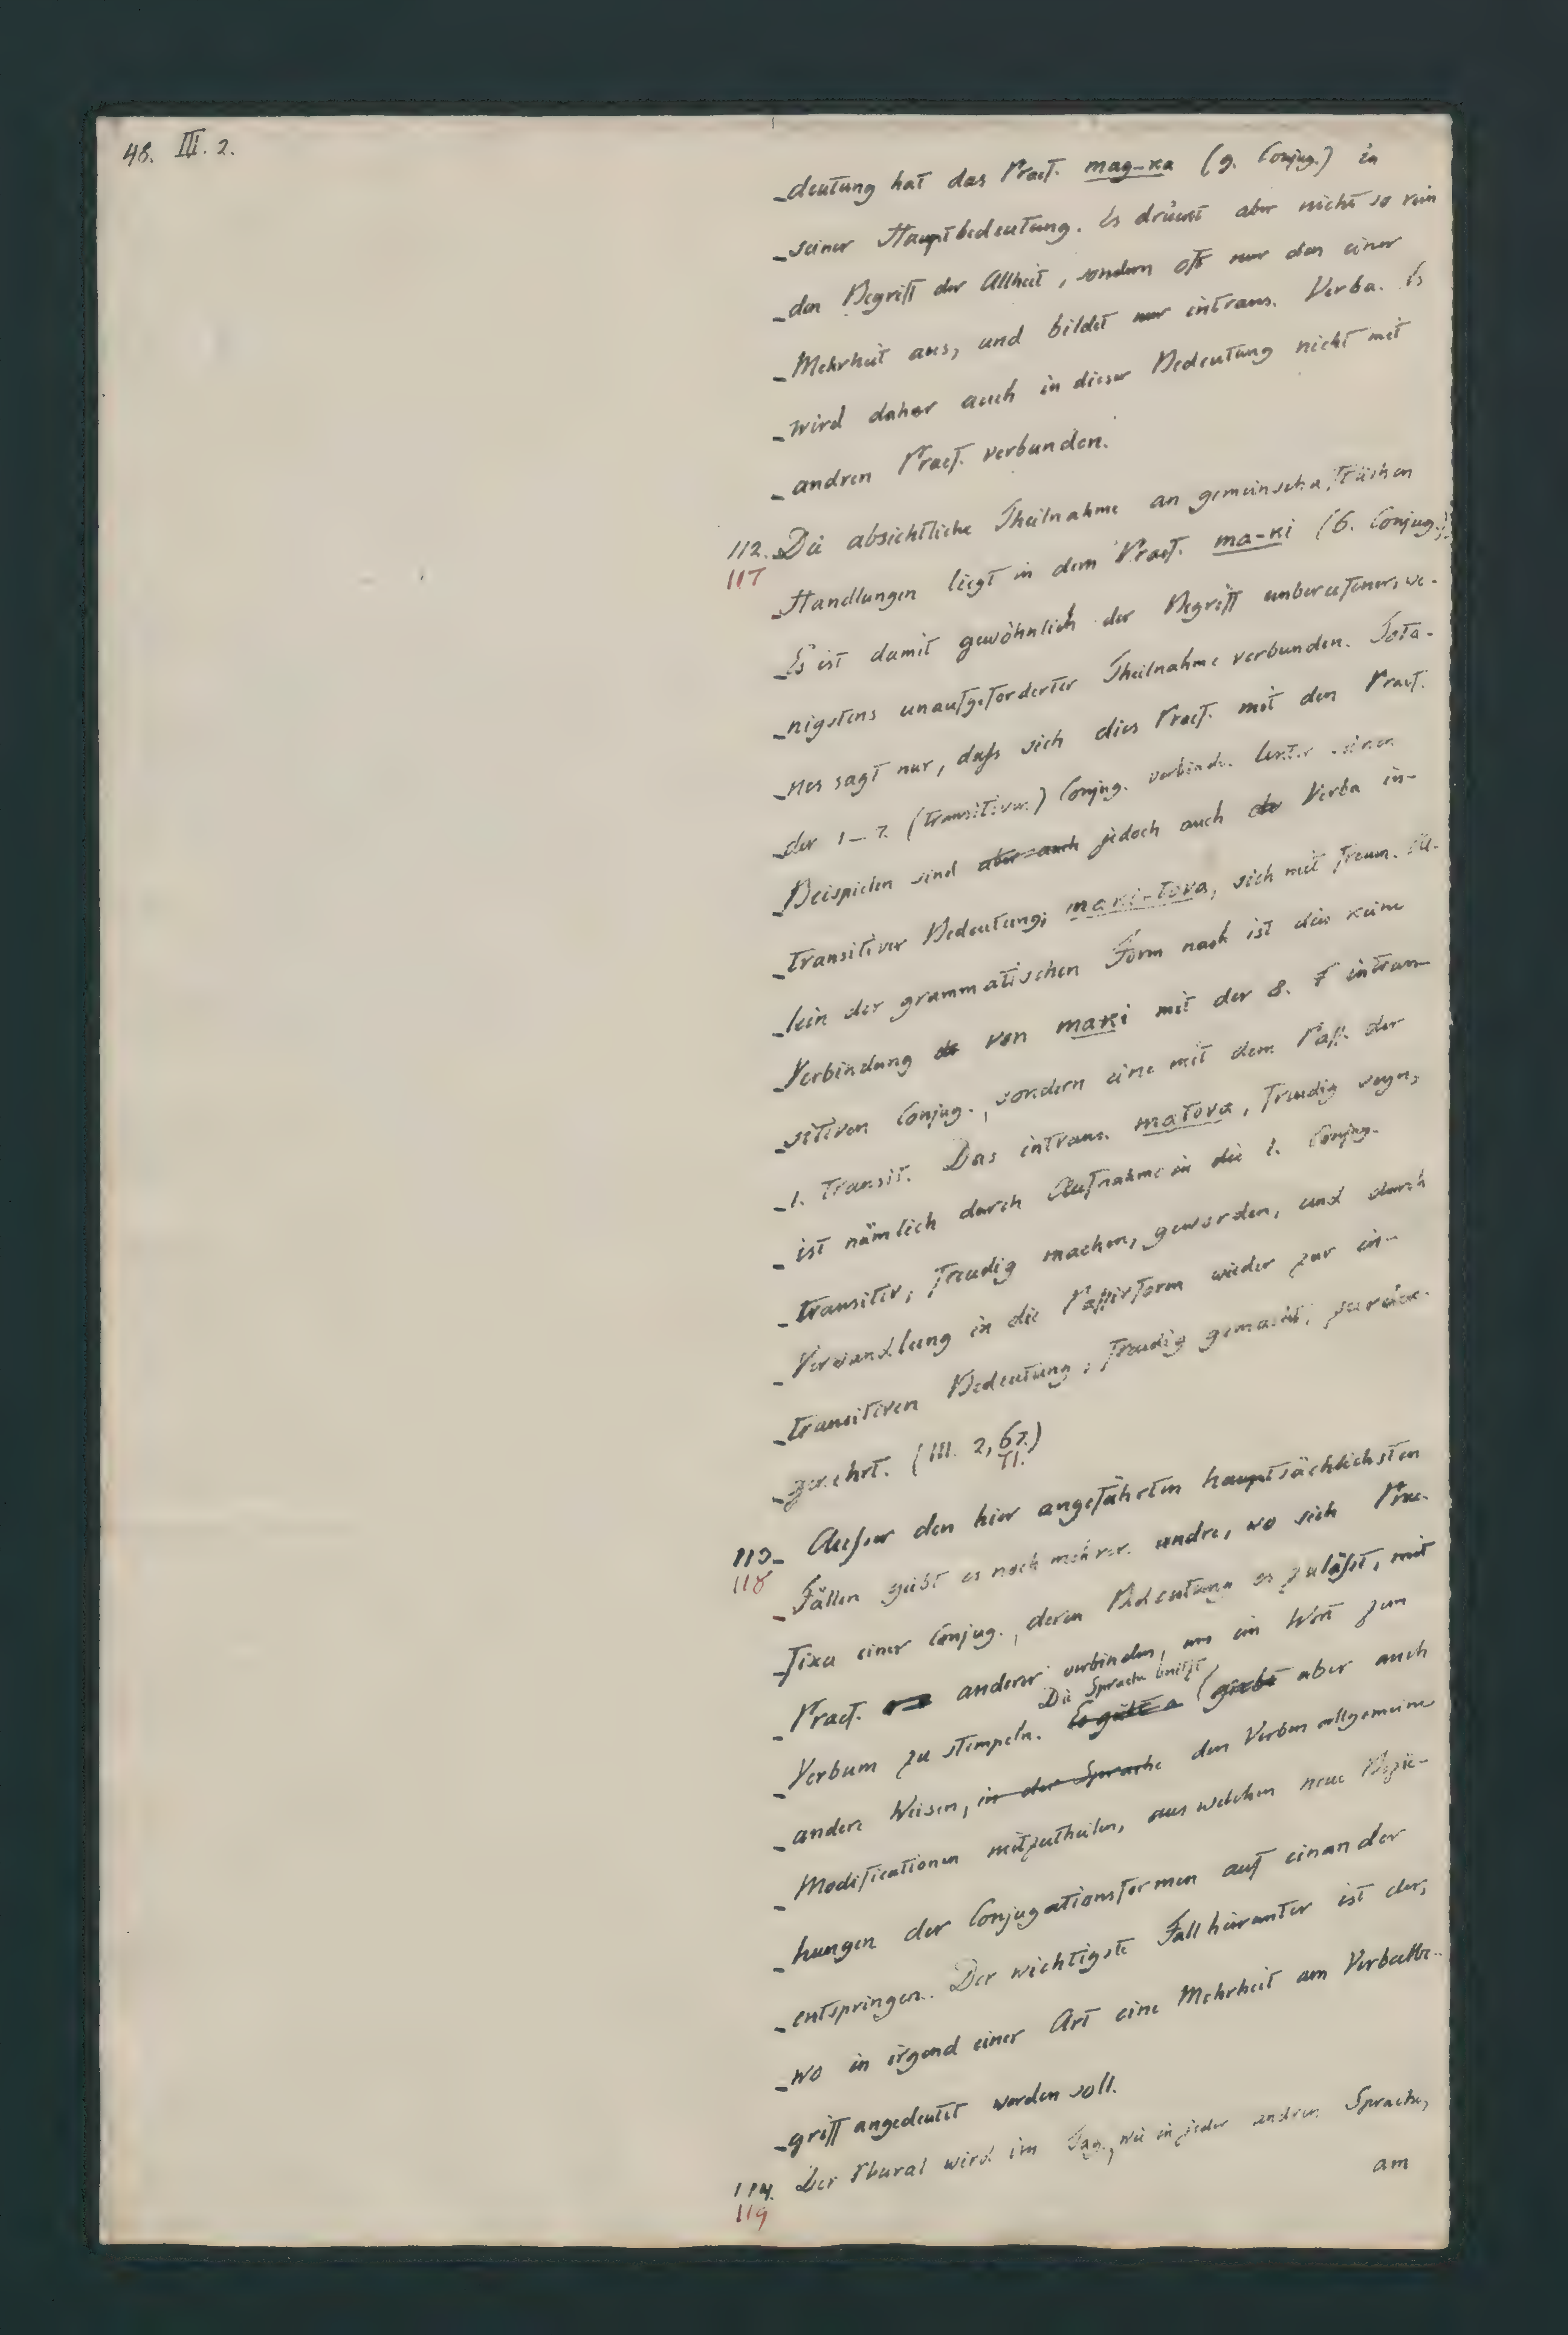 48. III. 2.
deutung hat das Praef. mag-ka (9. Conjug.) in
seiner Hauptbedeutung. Es drückt aber nicht so rein
den Begriff der Allheit, sondern oft nur den einer
Mehrheit aus, und bildet nur intrans. Verba. Es
wird daher auch in dieser Bedeutung nicht mit
andren Praef. verbunden.
112. Die absichtliche Theilnahme an gemeinschaftlichen
117
Handlungen liegt in dem Praef. ma-ki (6. Conjug.);
Es ist damit gewöhnlich der Begriff unberufener, we-
nigstens unaufgeforderter Theilnahme verbunden. Tota-
nes sagt nur, dafs sich dies Praef. mit den Praef.
der 1–7. (transitiven) Conjug. verbinde. Unter seinen
Beispielen sind aber auch jedoch auch Verba in-
transitiver Bedeutung; maki-tova, sich mit freuen. Al-
lein der grammatischen Form nach ist dies keine
Verbindung von maki mit der 8. intran-
sitiven Conjug., sondern eine mit dem Pass. der
1. transit. Das intrans. matova, freudig seyn,
ist nämlich durch Aufnahme in die 1. Conjug.
transitiv, freudig machen, geworden, und durch
Verwandlung in die Passivform wieder zur in-
transitiven Bedeutung, freudig gemacht, zurück-
gekehrt. (III. 2, 67.)
71.
113. Aufser den hier angeführten hauptsächlichsten
118
Fällen giebt es noch mehrere andre, wo sich Prae-
fixa einer Conjug., deren Bedeutung es zuläfst, mit
Praef. anderer verbinden, um ein Wort zum
Die Sprache besitzt
Verbum zu stempeln. Es giebt giebt aber auch
andere Weisen, in der Sprache den Verben allgemeine
Modificationen mitzutheilen, aus welchen neue Bezie-
hungen der Conjugationsformen auf einander
entspringen. Der wichtigste Fall hierunter ist der,
wo in irgend einer Art eine Mehrheit am Verbalbe-
griff angedeutet werden soll.
114. Der Plural wird im Tag., wie in jeder andren Sprache,
119
am